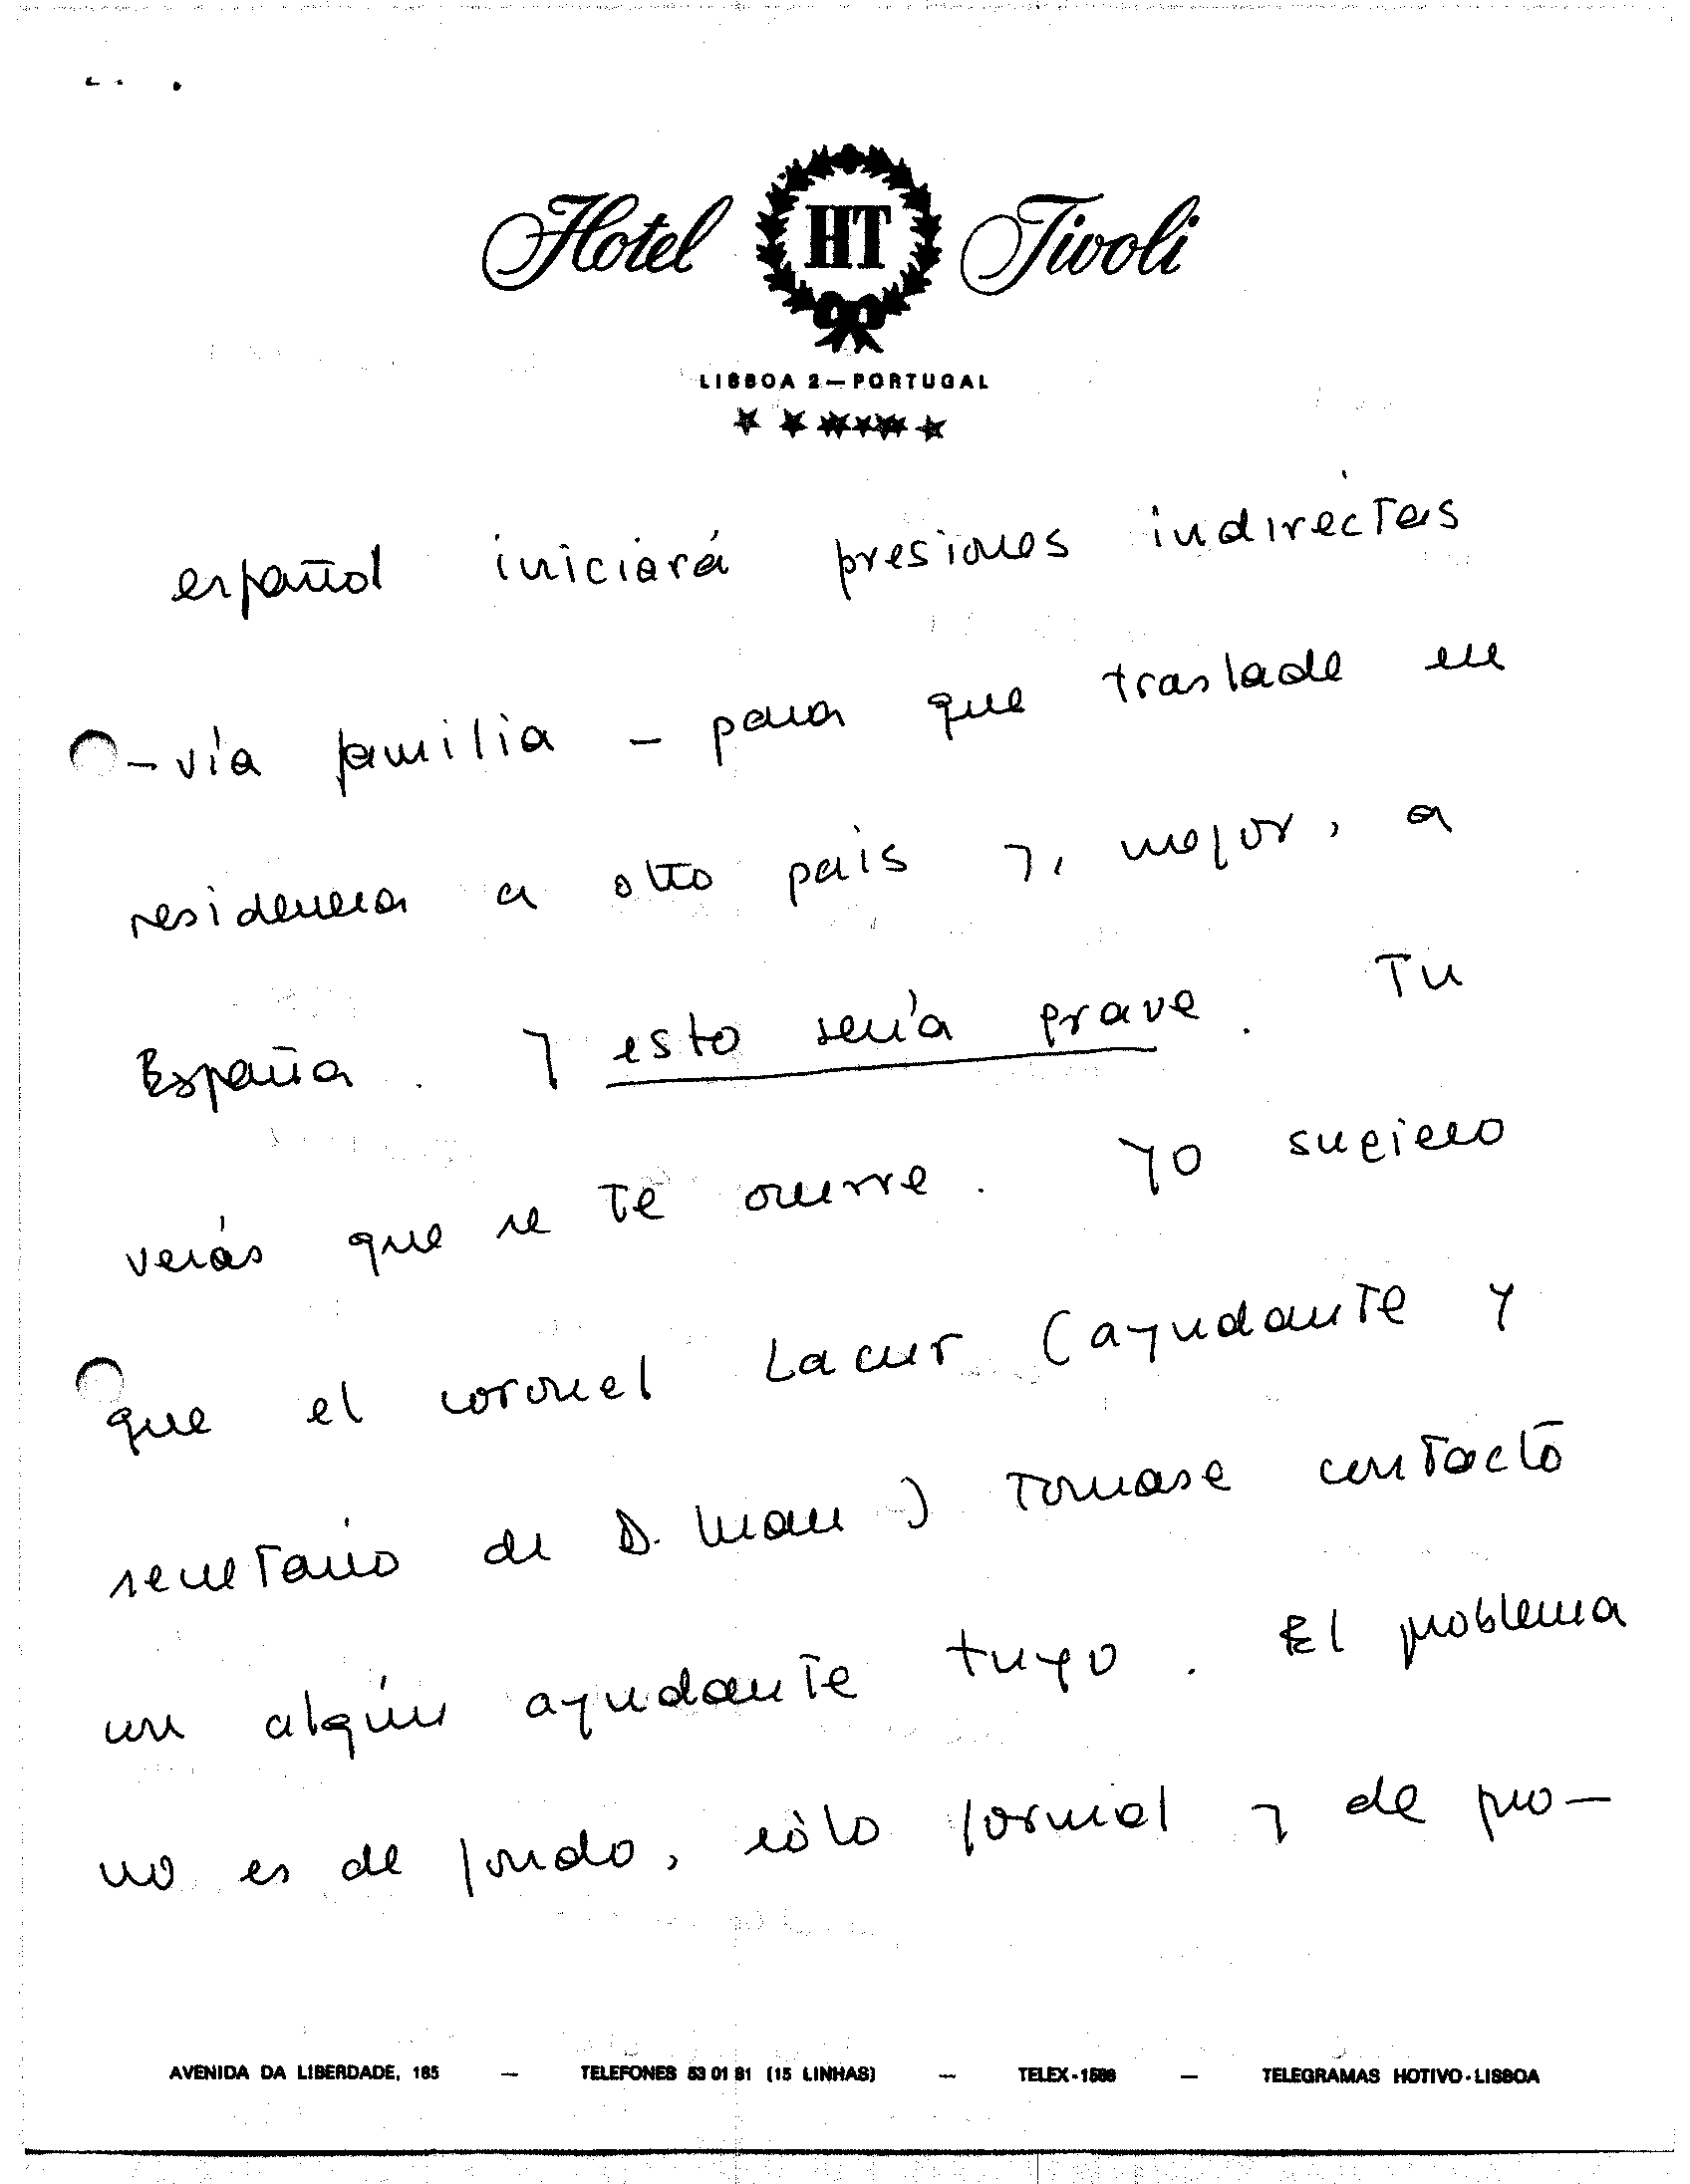 Hotel HT Tivoli
LISBOA 2 — PORTUGAL
español iniciará presiones indirectas
- vía familia - para que traslade su
residencia a otro país y, mejor, a
España. Y esto sería grave. Tu
verás que se te ocurre. Yo sugiero
que el coronel Lacur (ayudante y
secretario de D. Juan) tomase contacto
con algún ayudante tuyo. El problema
no es de fondo, sólo formal y de pro-
AVENIDA DA LIBERDADE, 185 — TELEFONES 53 01 81 (15 LINHAS) — TELEX - 1588 — TELEGRAMAS HOTIVO - LISBOA